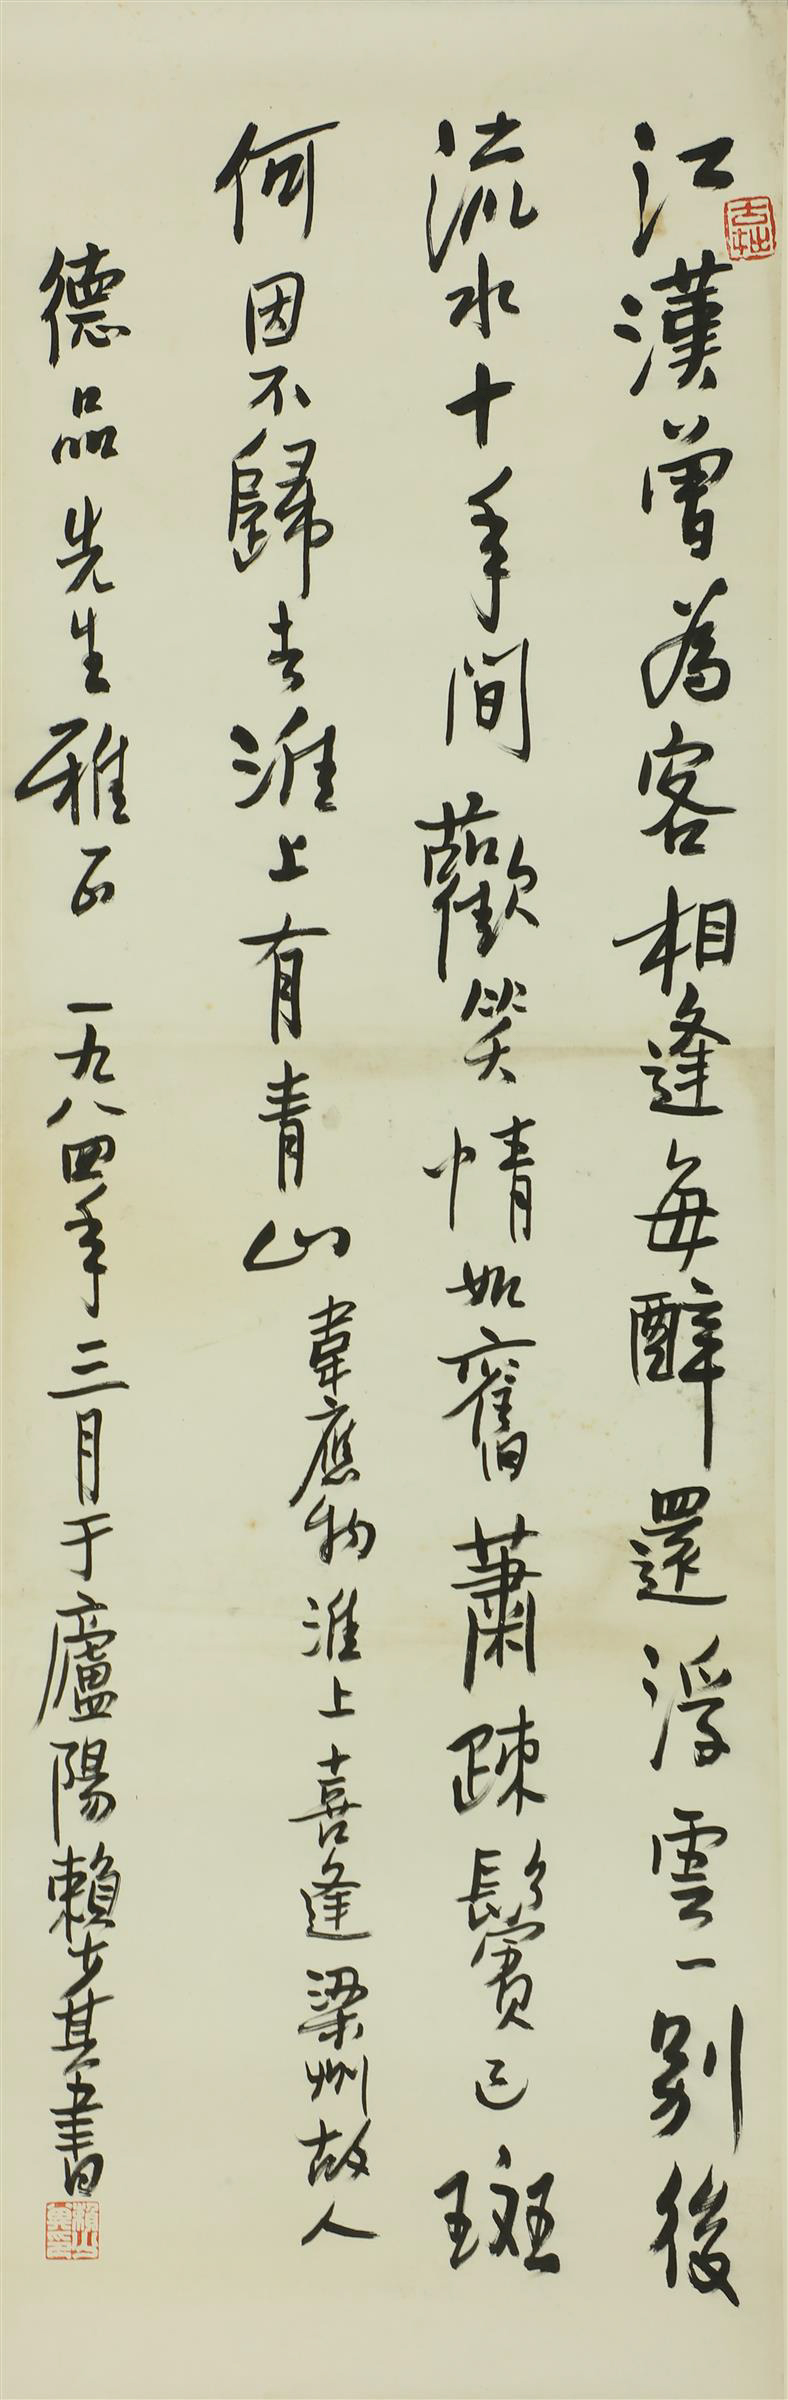 江漢曾為客相逢每醉還浮雲一別後
流水十年間歡笑情如舊蕭疎鬢已斑
何因不歸去淮上有青山
韋應物淮上喜逢梁州故人
德品先生雅正 一九八四年三月于廬陽賴少其書